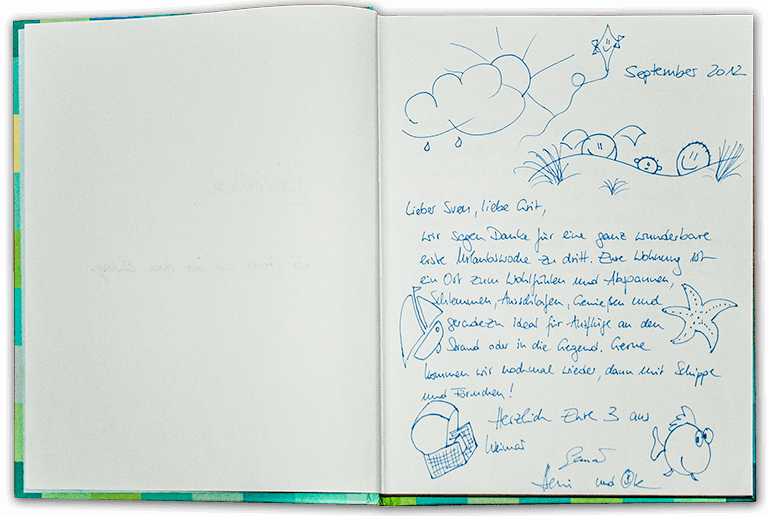 September 2012
Lieber Sven, liebe Grit,
wir sagen Danke für eine ganz wunderbare
erste Urlaubswoche zu dritt. Eure Wohnung ist
ein Ort zum Wohlfühlen und Abspannen,
Schlemmen, Ausschlafen, Genießen und
geradezu ideal für Ausflüge an den
Strand oder in die Gegend. Gerne
kommen wir nochmal wieder, dann mit Schippe
und Förmchen!
Herzlich Eure 3 aus
Weimar
und